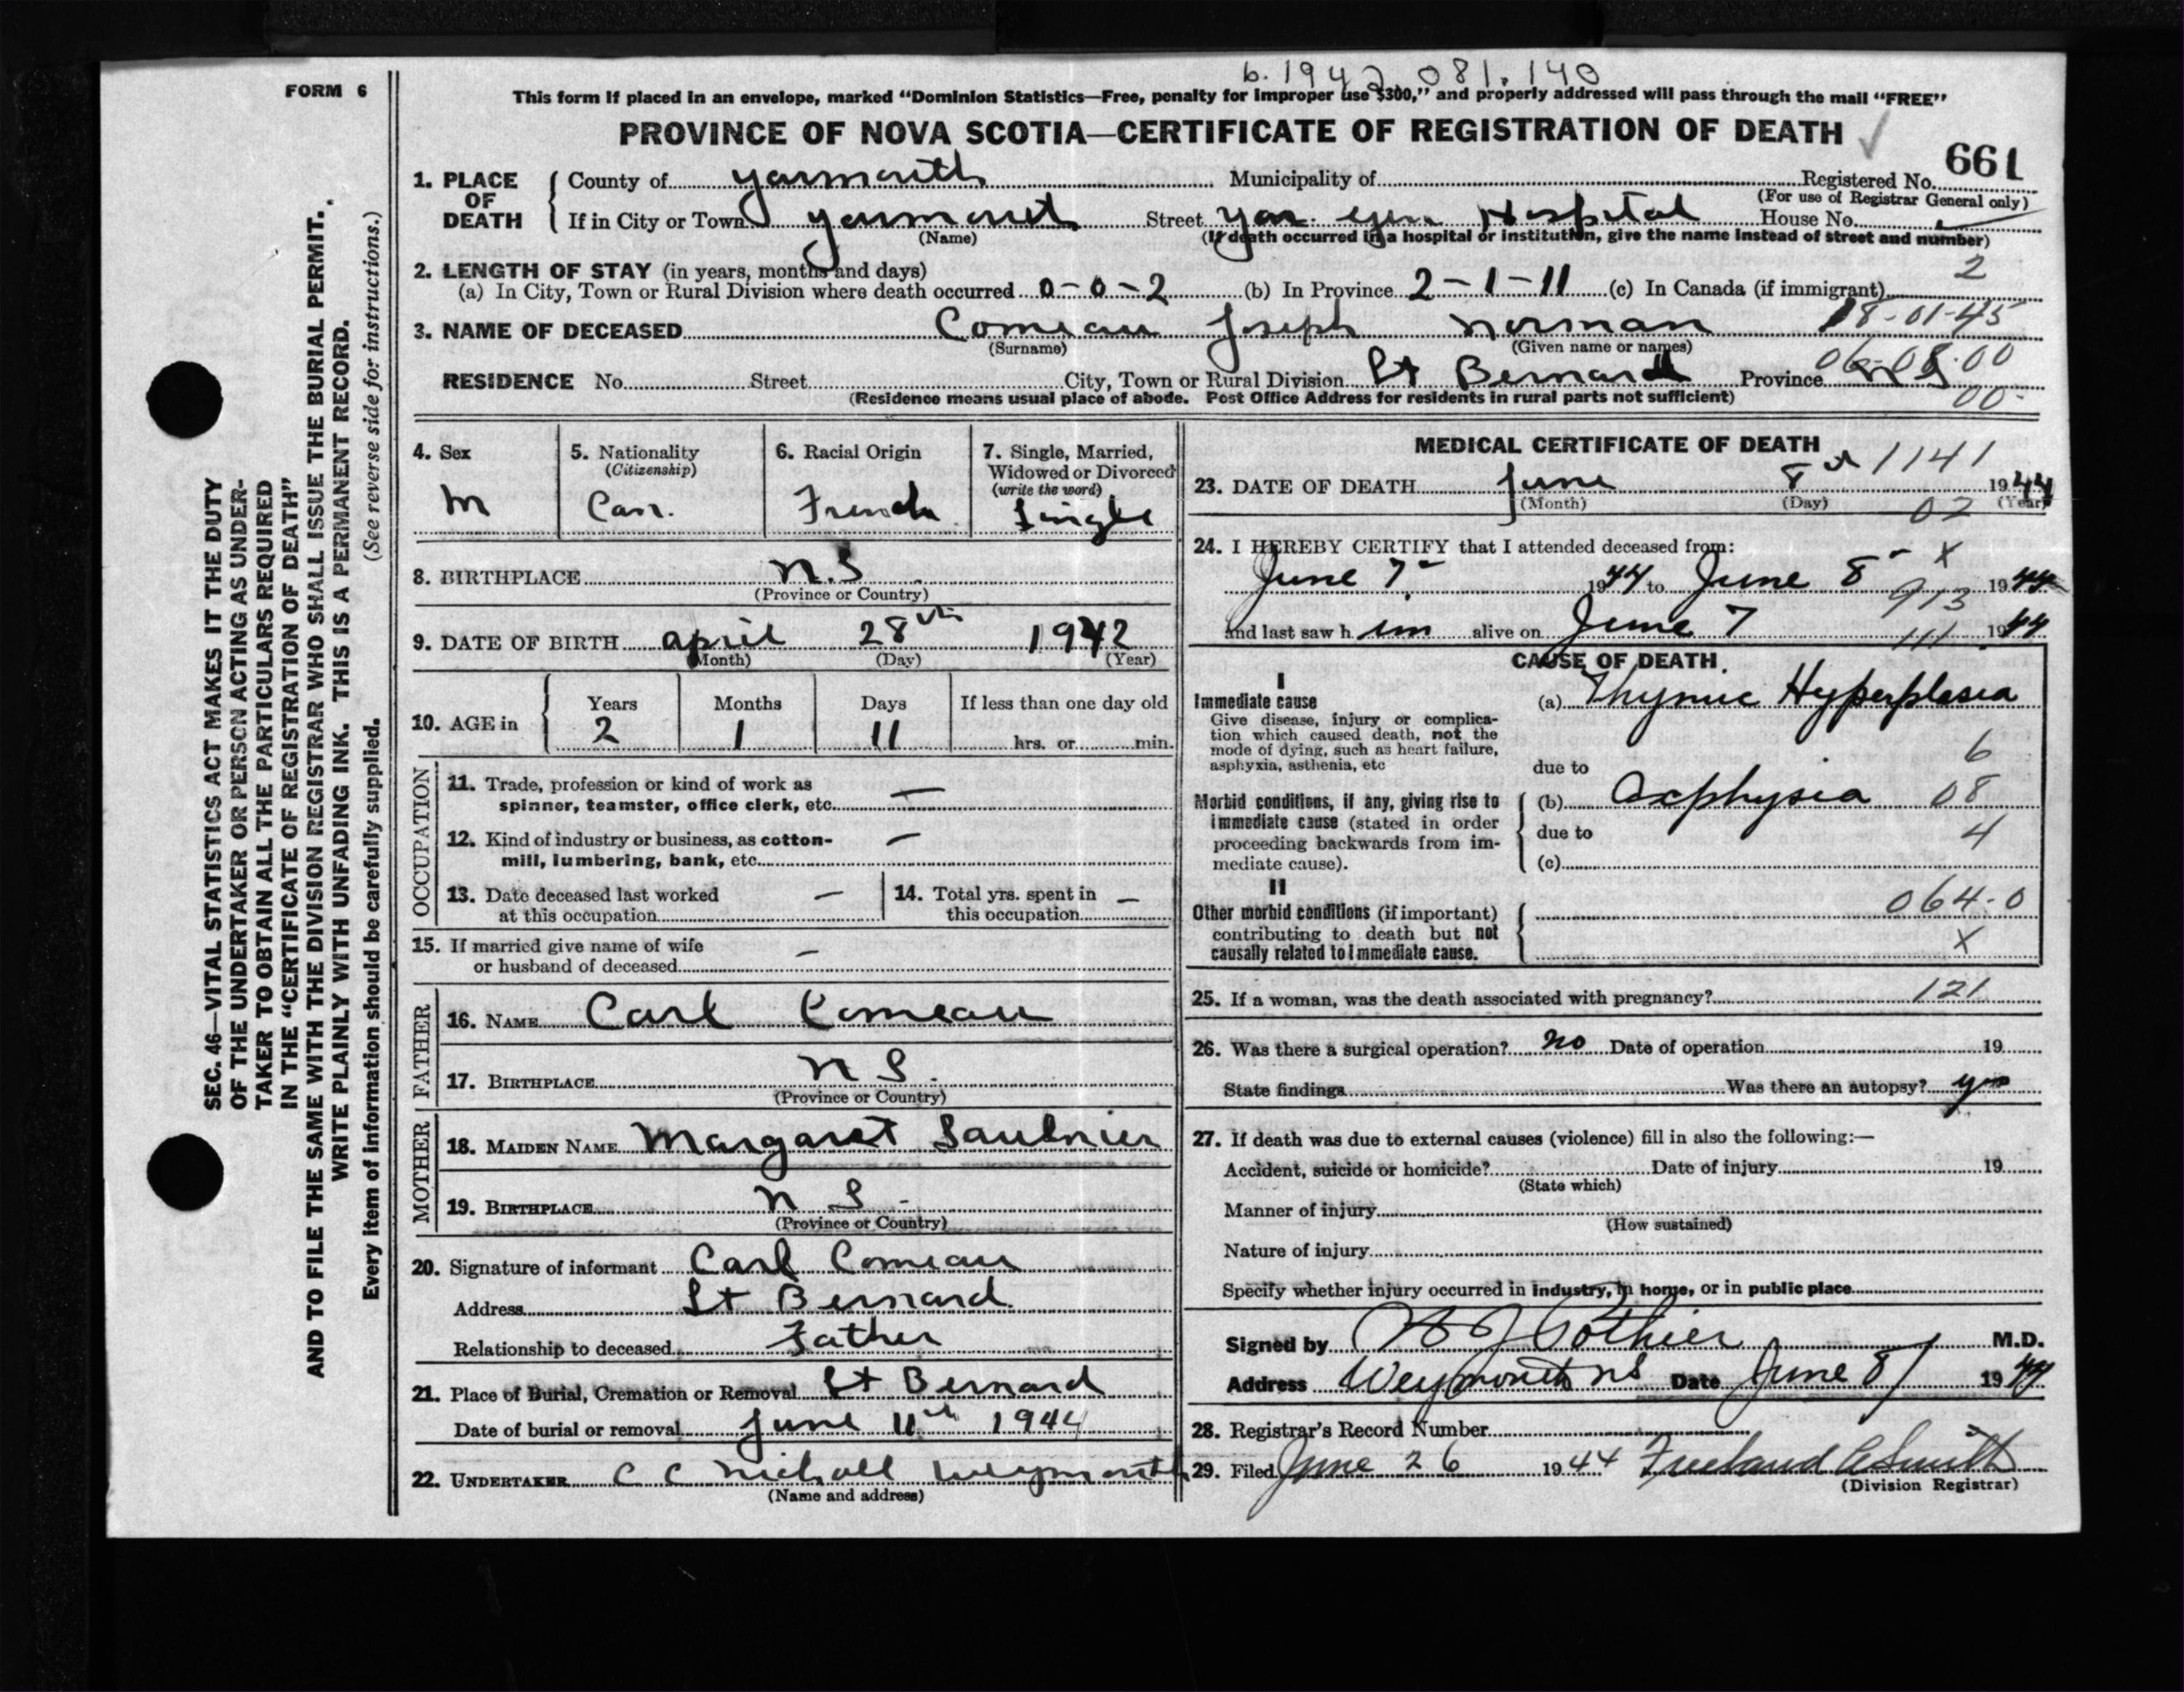 b. 1942. 081. 140
FORM 6
This form if placed in an envelope, marked “Dominion Statistics—Free, penalty for improper use $300,” and properly addressed will pass through the mail “FREE”
PROVINCE OF NOVA SCOTIA—CERTIFICATE OF REGISTRATION OF DEATH
661
SEC. 46—VITAL STATISTICS ACT MAKES IT THE DUTY
OF THE UNDERTAKER OR PERSON ACTING AS UNDER-
TAKER TO OBTAIN ALL THE PARTICULARS REQUIRED
IN THE “CERTIFICATE OF REGISTRATION OF DEATH”
AND TO FILE THE SAME WITH THE DIVISION REGISTRAR WHO SHALL ISSUE THE BURIAL PERMIT.
WRITE PLAINLY WITH UNFADING INK. THIS IS A PERMANENT RECORD.
Every item of information should be carefully supplied. (See reverse side for instructions.)
1. PLACE OF DEATH County of Yarmouth Municipality of Registered No.
(For use of Registrar General only)
If in City or Town Yarmouth Street Yar. Gen Hospital House No.
(Name) (If death occurred in a hospital or institution, give the name instead of street and number)
2. LENGTH OF STAY (in years, months and days) 2
(a) In City, Town or Rural Division where death occurred 0-0-2 (b) In Province 2-1-11 (c) In Canada (if immigrant)
3. NAME OF DECEASED Comeau Joseph Norman 18-01-45
(Surname) (Given name or names)
06-08-00
RESIDENCE No. Street City, Town or Rural Division St Bernard Province N S
(Residence means usual place of abode. Post Office Address for residents in rural parts not sufficient) 00-
4. Sex
M
5. Nationality
(Citizenship)
Can.
6. Racial Origin
French
7. Single, Married,
Widowed or Divorced
(write the word)
Single
8. BIRTHPLACE N.S.
(Province or Country)
9. DATE OF BIRTH april 28th 1942
(Month) (Day) (Year)
10. AGE in Years Months Days If less than one day old
2 1 11 hrs. or min.
OCCUPATION
11. Trade, profession or kind of work as
spinner, teamster, office clerk, etc. —
12. Kind of industry or business, as cotton-
mill, lumbering, bank, etc. —
13. Date deceased last worked
at this occupation —
14. Total yrs. spent in
this occupation —
15. If married give name of wife
or husband of deceased —
FATHER
16. NAME Carl Comeau
17. BIRTHPLACE N S.
(Province or Country)
MOTHER
18. MAIDEN NAME Margaret Saulnier
19. BIRTHPLACE N S.
(Province or Country)
20. Signature of informant Carl Comeau
Address St Bernard
Relationship to deceased Father
21. Place of Burial, Cremation or Removal St Bernard
Date of burial or removal June 11th 1944
22. UNDERTAKER C C Nichall Weymouth
(Name and address)
MEDICAL CERTIFICATE OF DEATH
1141
23. DATE OF DEATH June 8th 1944
(Month) (Day) (Year)
02
24. I HEREBY CERTIFY that I attended deceased from:
X
June 7 1944 to June 8 1944
913
and last saw h im alive on June 7 1944
111
CAUSE OF DEATH
I
Immediate cause
Give disease, injury or complica-
tion which caused death, not the
mode of dying, such as heart failure,
asphyxia, asthenia, etc
(a) Thymic Hyperplasia
6
due to
Morbid conditions, if any, giving rise to
immediate cause (stated in order
proceeding backwards from im-
mediate cause).
(b) Asphysia 08
due to 4
(c)
II
Other morbid conditions (if important)
contributing to death but not
causally related to immediate cause.
064-0
X
25. If a woman, was the death associated with pregnancy? 121
26. Was there a surgical operation? no Date of operation 19
State findings Was there an autopsy? yes
27. If death was due to external causes (violence) fill in also the following:—
Accident, suicide or homicide? Date of injury 19
(State which)
Manner of injury
(How sustained)
Nature of injury
Specify whether injury occurred in industry, in home, or in public place
Signed by Pothier M.D.
Address Weymouth NS Date June 8 1944
28. Registrar's Record Number
29. Filed June 26 1944 Freeland A Smith
(Division Registrar)